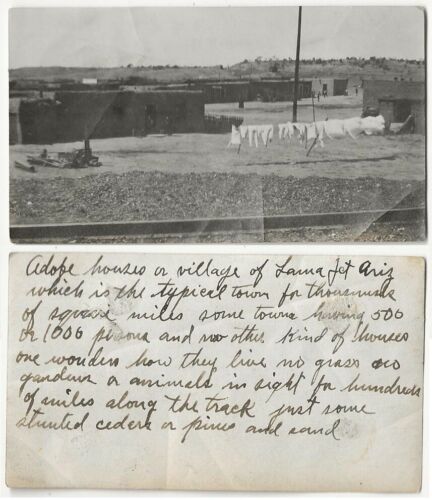 Adobe houses or village of Lama Jct Ariz
which is the typical town for thousands
of square miles some towns having 500
or 1000 persons and no other kind of houses
one wonders how they live no grass no
gardens or animals in sight for hundreds
of miles along the track just some
stunted ceders or pines and sand